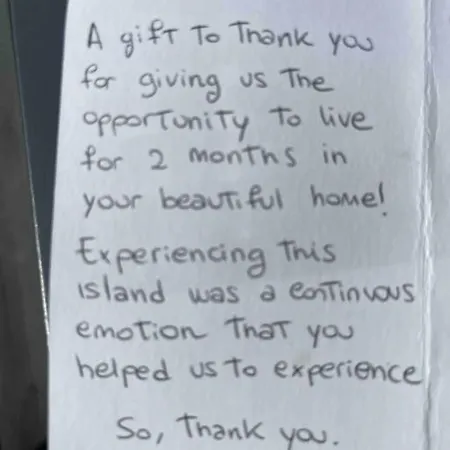 A gift to thank you
for giving us the
opportunity to live
for 2 months in
your beautiful home!
Experiencing this
island was a continuous
emotion that you
helped us to experience
So, thank you.